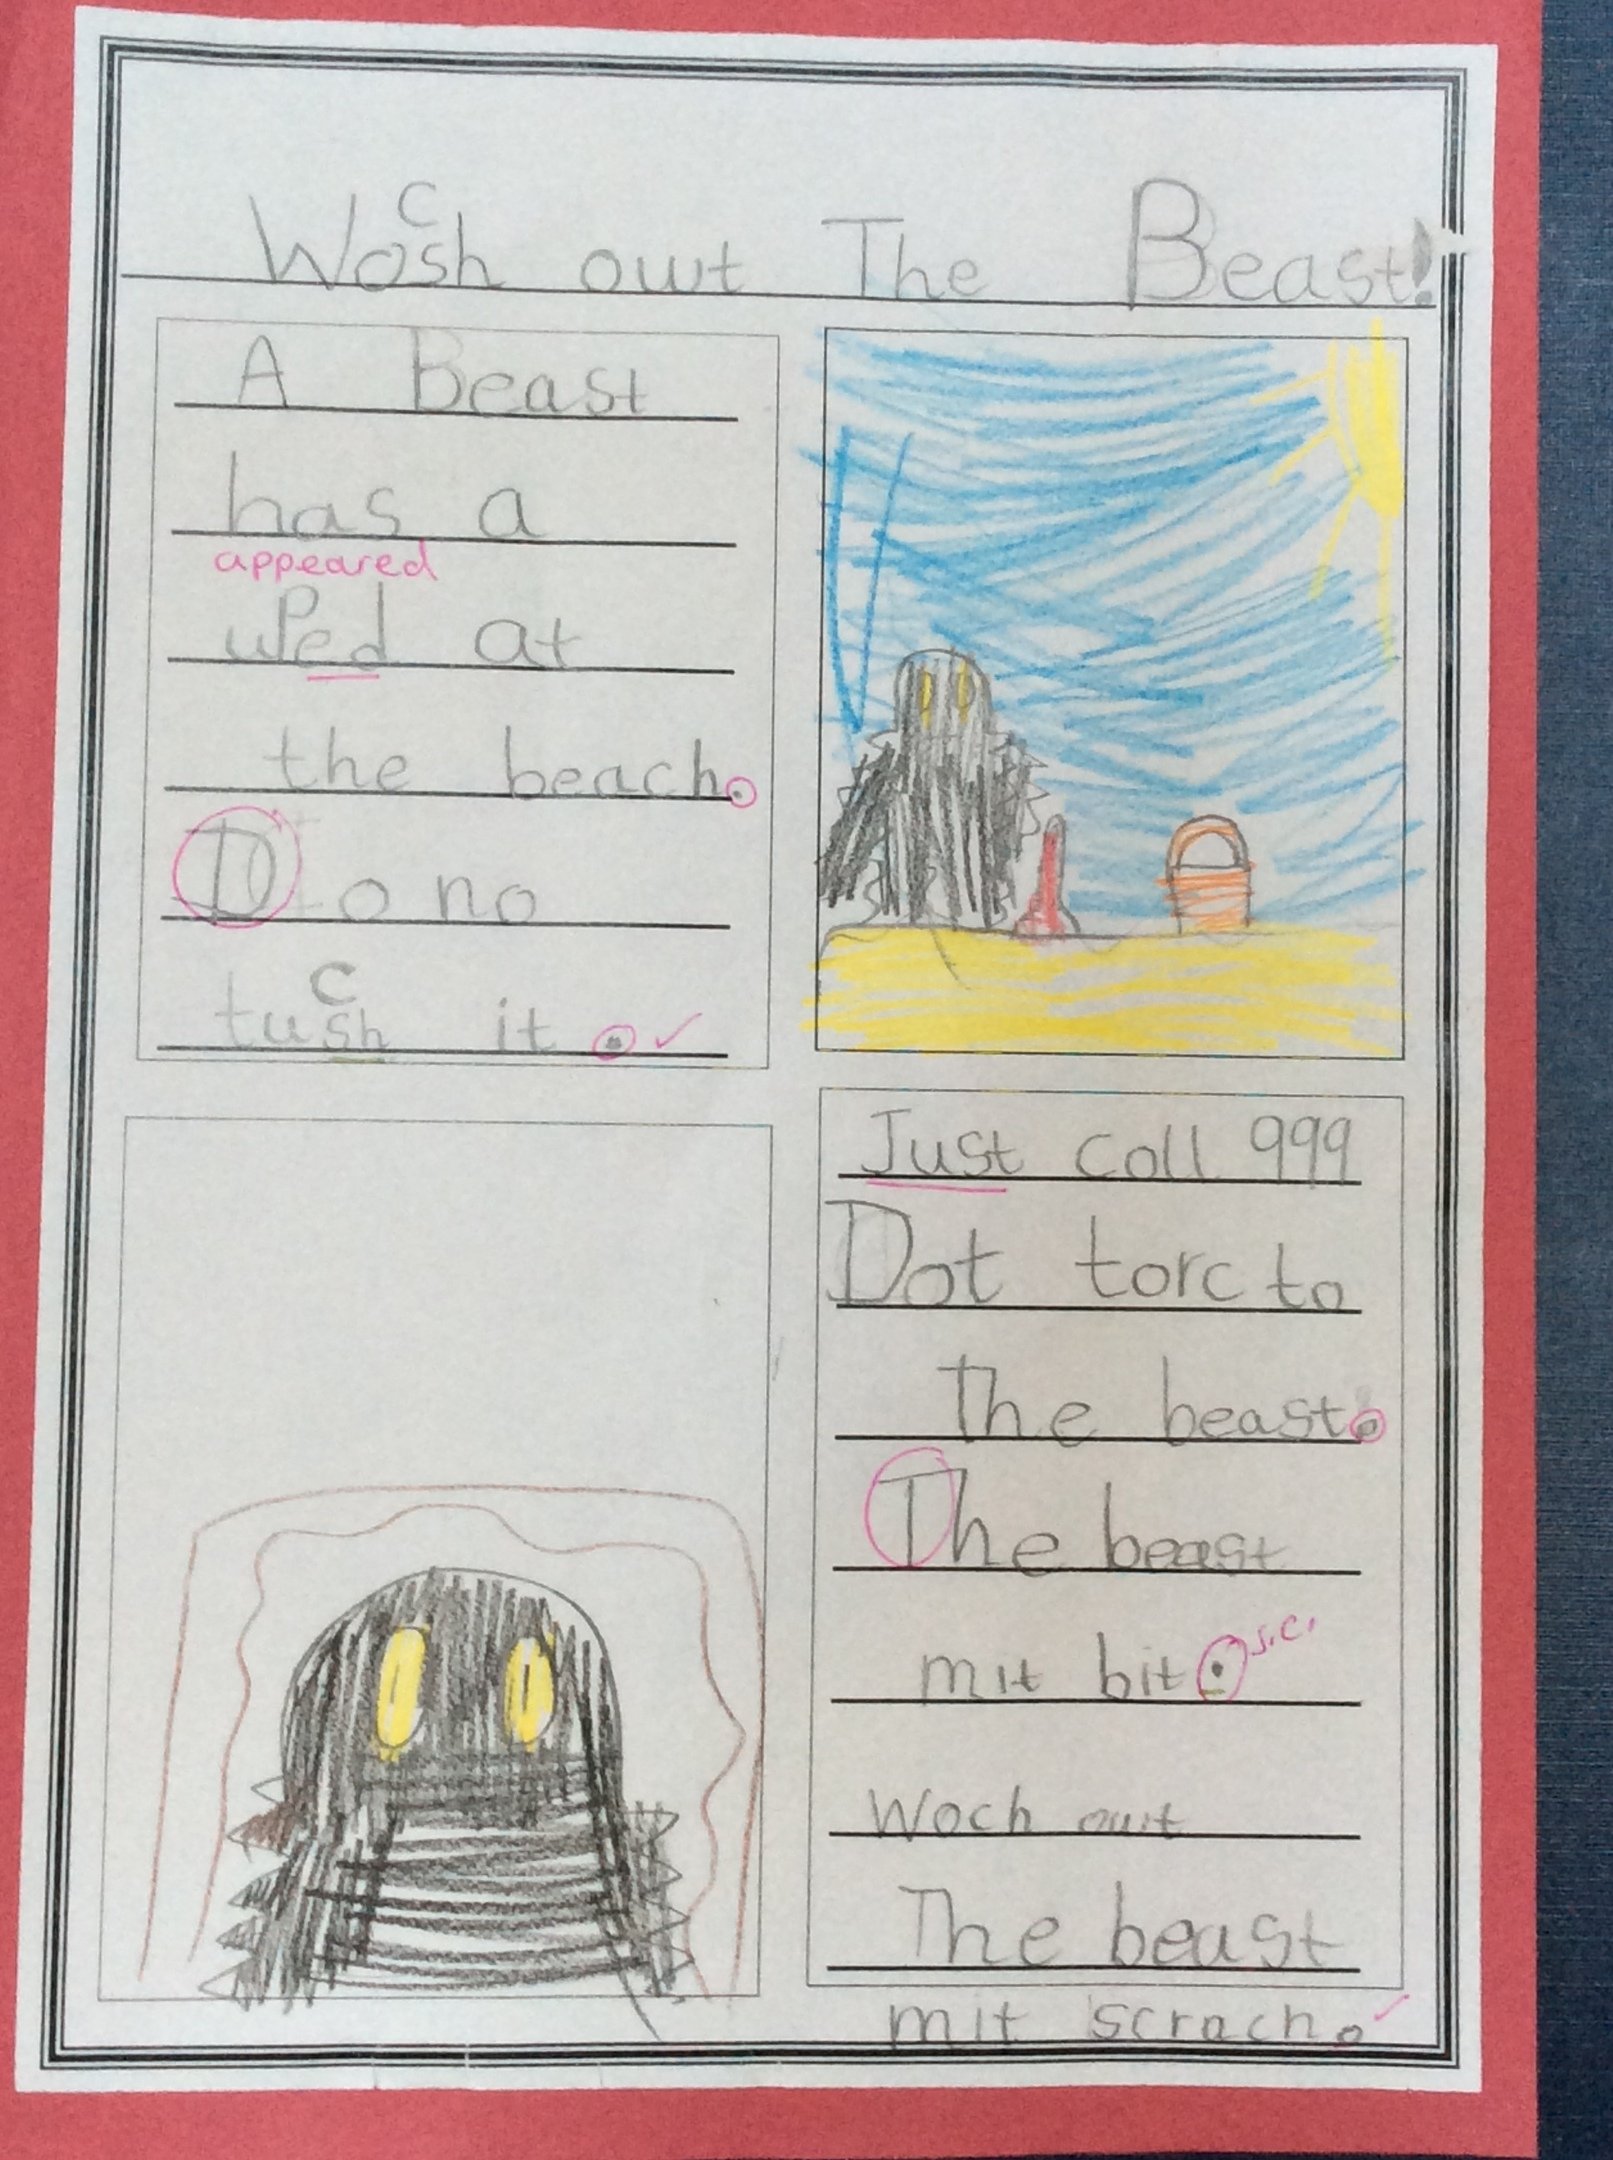 Woch owt The Beast!
A Beast
has a
appeared
uPed at
the beach.
Do no
tuch it.
Just coll 999
Dot torc to
The beast.
The beast
mit bit. s.c.
Woch owt
The beast
mit scrach.